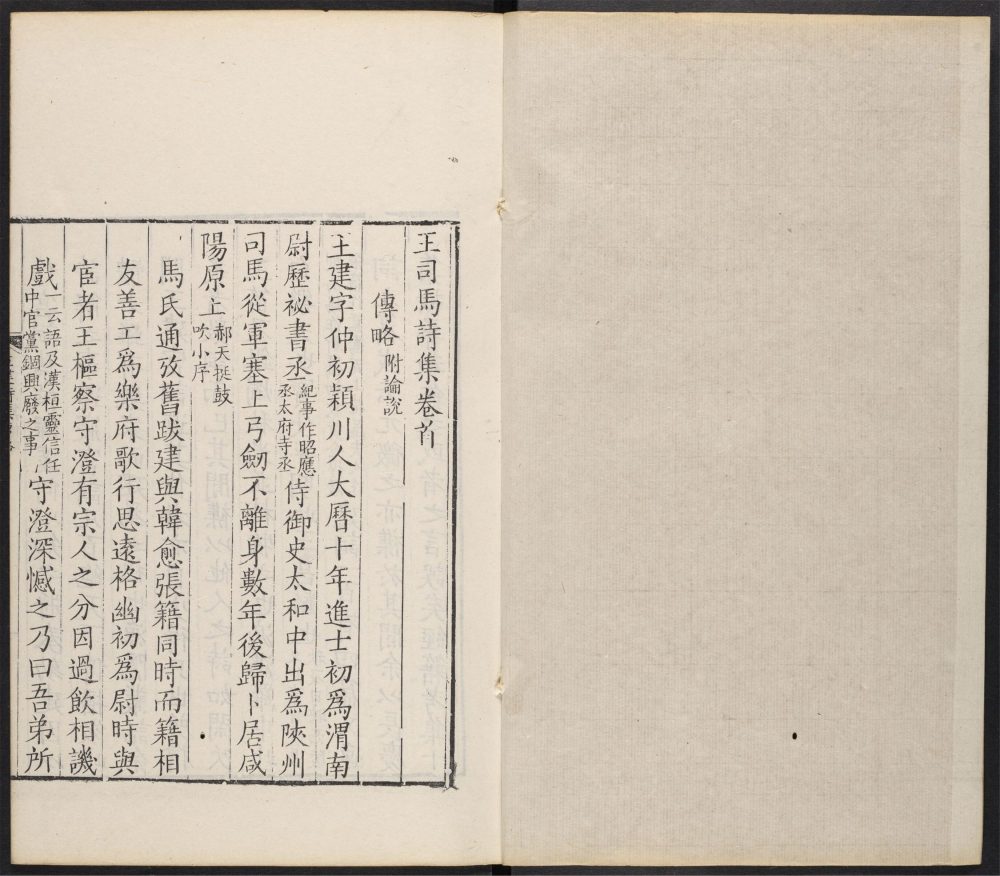 王司馬詩集卷首
傳略附論說
王建字仲初潁川人大曆十年進士初爲渭南
尉歷祕書丞紀事作昭應丞太府寺丞侍御史太和中出爲陝州
司馬從軍塞上弓劒不離身數年後歸卜居咸
陽原上郝天挺鼓吹小序
馬氏通攷舊跋建與韓愈張籍同時而籍相
友善工爲樂府歌行思遠格幽初爲尉時與
宦者王樞察守澄有宗人之分因過飲相譏
戲一云語及漢桓靈信任中官黨錮興廢之事守澄深憾之乃曰吾弟所